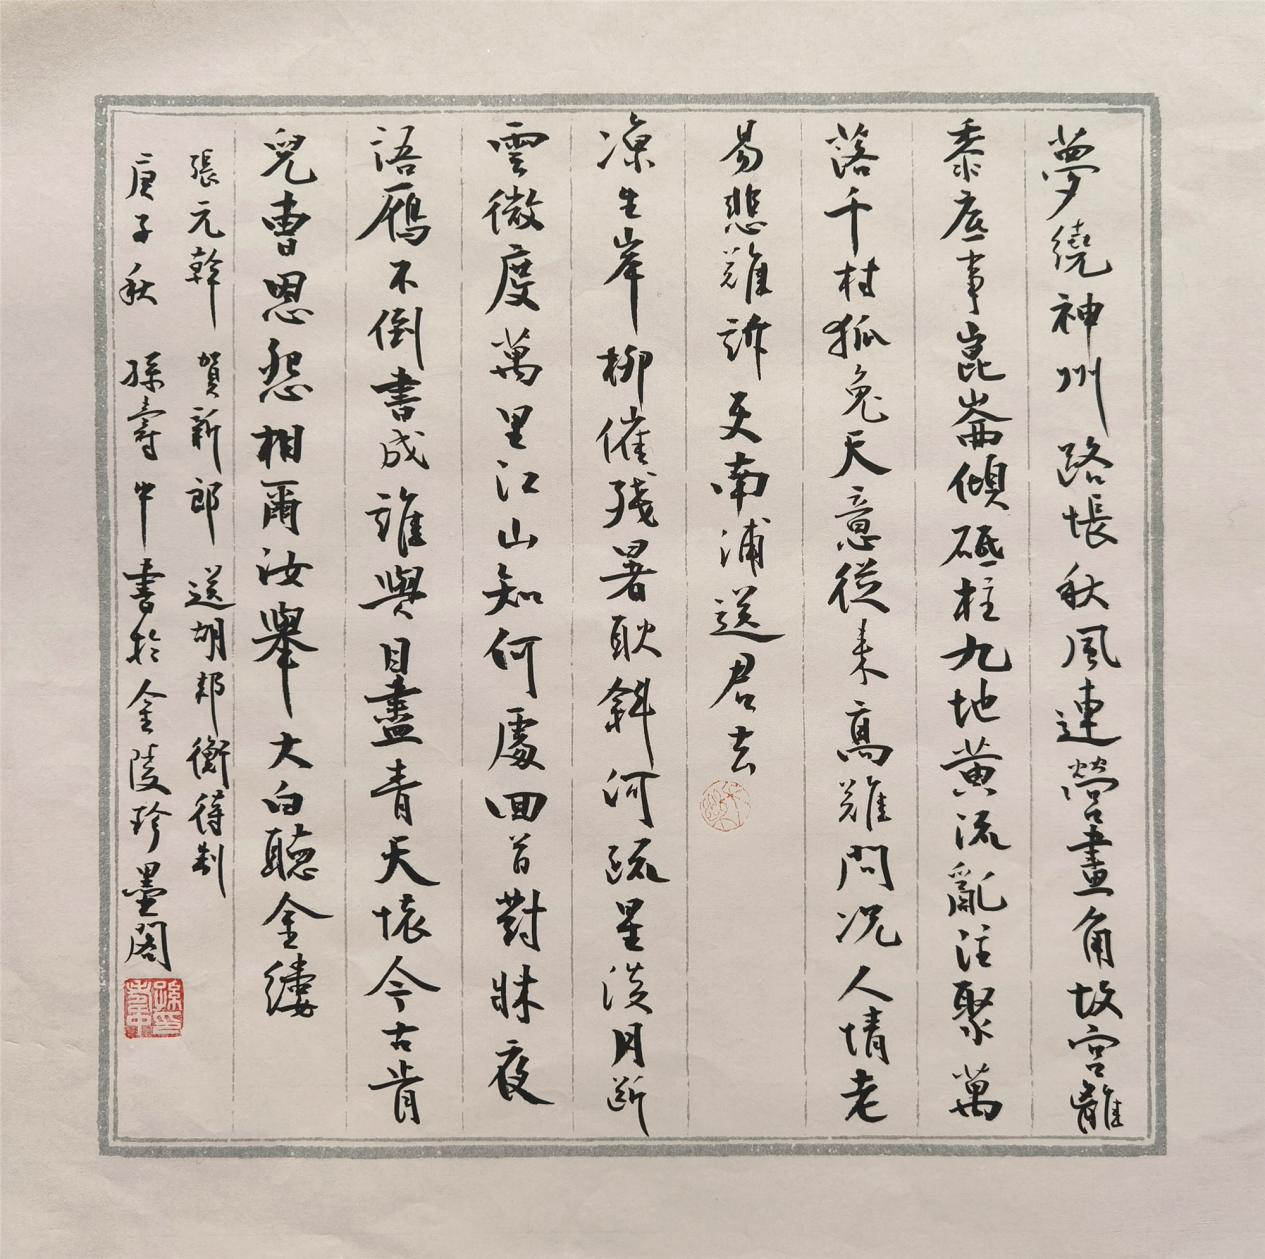 夢繞神州路悵秋風連營畫角故宮離
黍底事崑崙傾砥柱九地黄流亂注聚萬
落千村狐兔天意從来高難問况人情老
易悲難訴更南浦送君去
凉生岸柳催殘暑耿斜河疏星淡月斷
雲微度萬里江山知何處回首對牀夜
語雁不到書成誰與目盡青天懷今古肯
兒曹恩怨相爾汝舉大白聽金縷
張元幹 賀新郎 送胡邦衡待制
庚子秋 孫壽中書於金陵珍墨閣